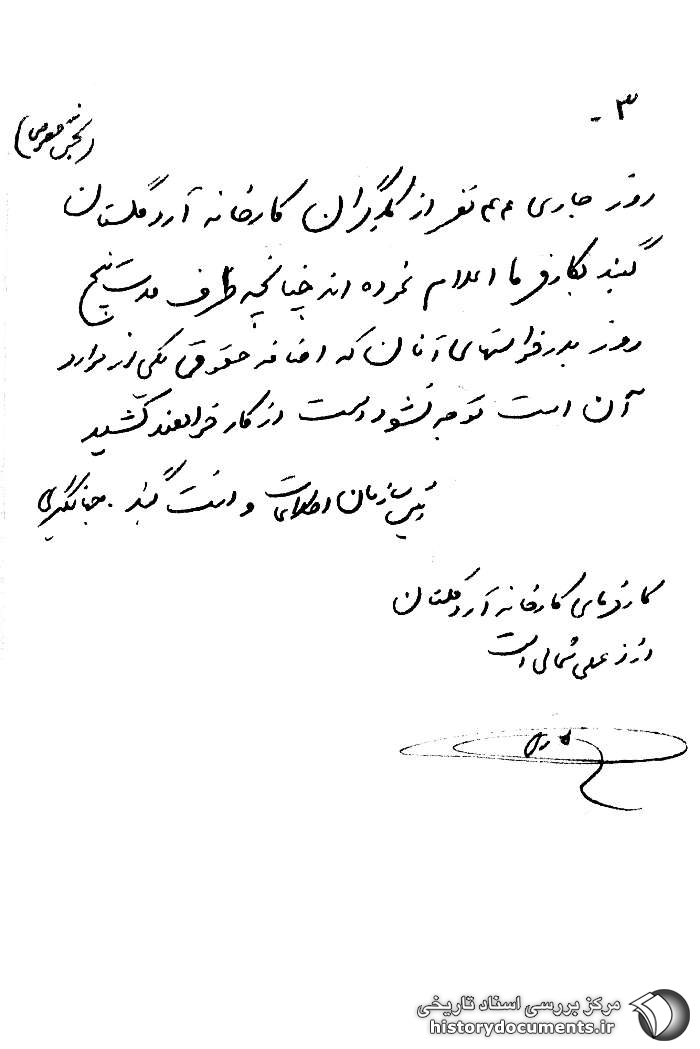 ۳ -
روز جاری ۴۴ نفر از کارگران کارخانه آرد گلستان
گنبد بکارفرما اعلام نموده اند چنانچه ظرف مدت پنج
روز بدرخواستهای آنان که اضافه حقوق یکی از موارد
آن است توجه نشود دست از کار خواهند کشید
رئیس سازمان اطلاعات و امنیت گنبد. جهانگیری
کارفرمای کارخانه آرد گلستان
علی شمالی است
مرکز بررسی اسناد تاریخی
historydocuments.ir